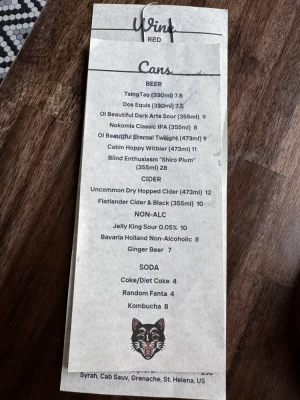 Wine
RED
Cans
BEER
TsingTao (330ml) 7.5
Dos Equis (330ml) 7.5
O! Beautiful Dark Arts Sour (355ml) 9
Nokomis Classic IPA (355ml) 8
O! Beautiful Eternal Twilight (473ml) 9
Cabin Hoppy Witbier (473ml) 11
Blind Enthusiasm "Shiro Plum"
(355ml) 28
CIDER
Uncommon Dry Hopped Cider (473ml) 12
Flatlander Cider & Black (355ml) 10
NON-ALC
Jelly King Sour 0.05% 10
Bavaria Holland Non-Alcoholic 8
Ginger Beer 7
SODA
Coke/Diet Coke 4
Random Fanta 4
Kombucha 8
Syrah, Cab Sauv, Grenache, St. Helena, US